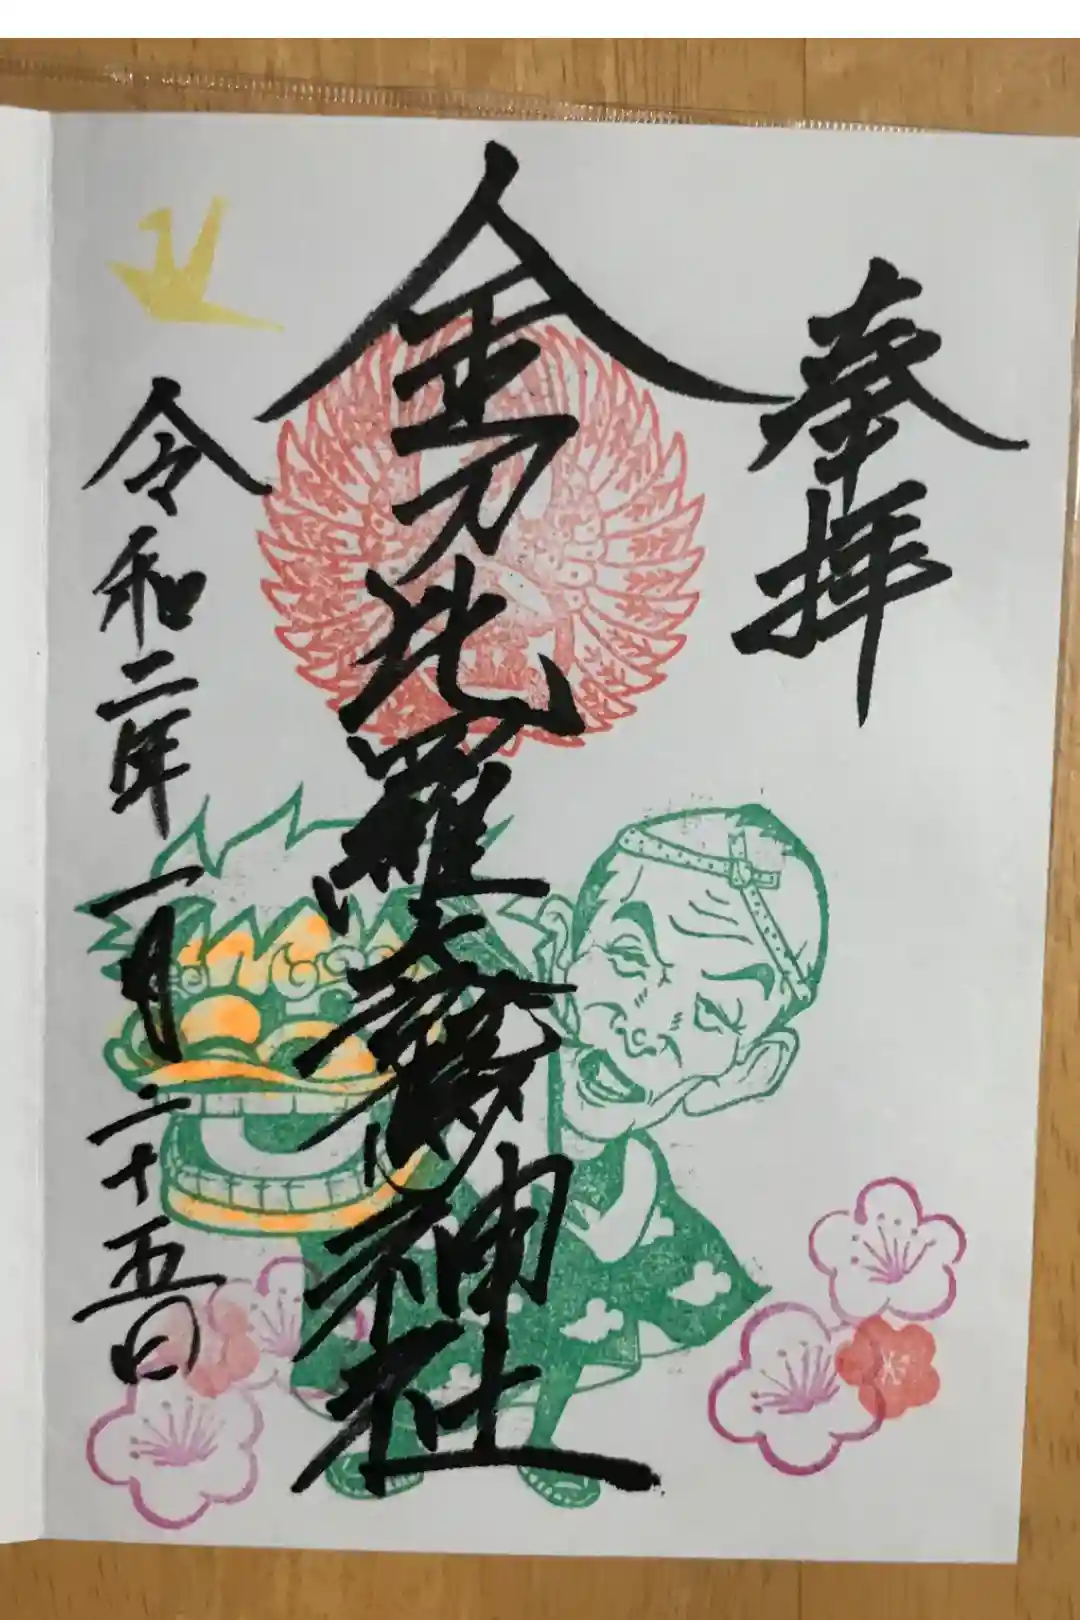 奉拝
金刀比羅大鷲神社
令和二年一月二十五日